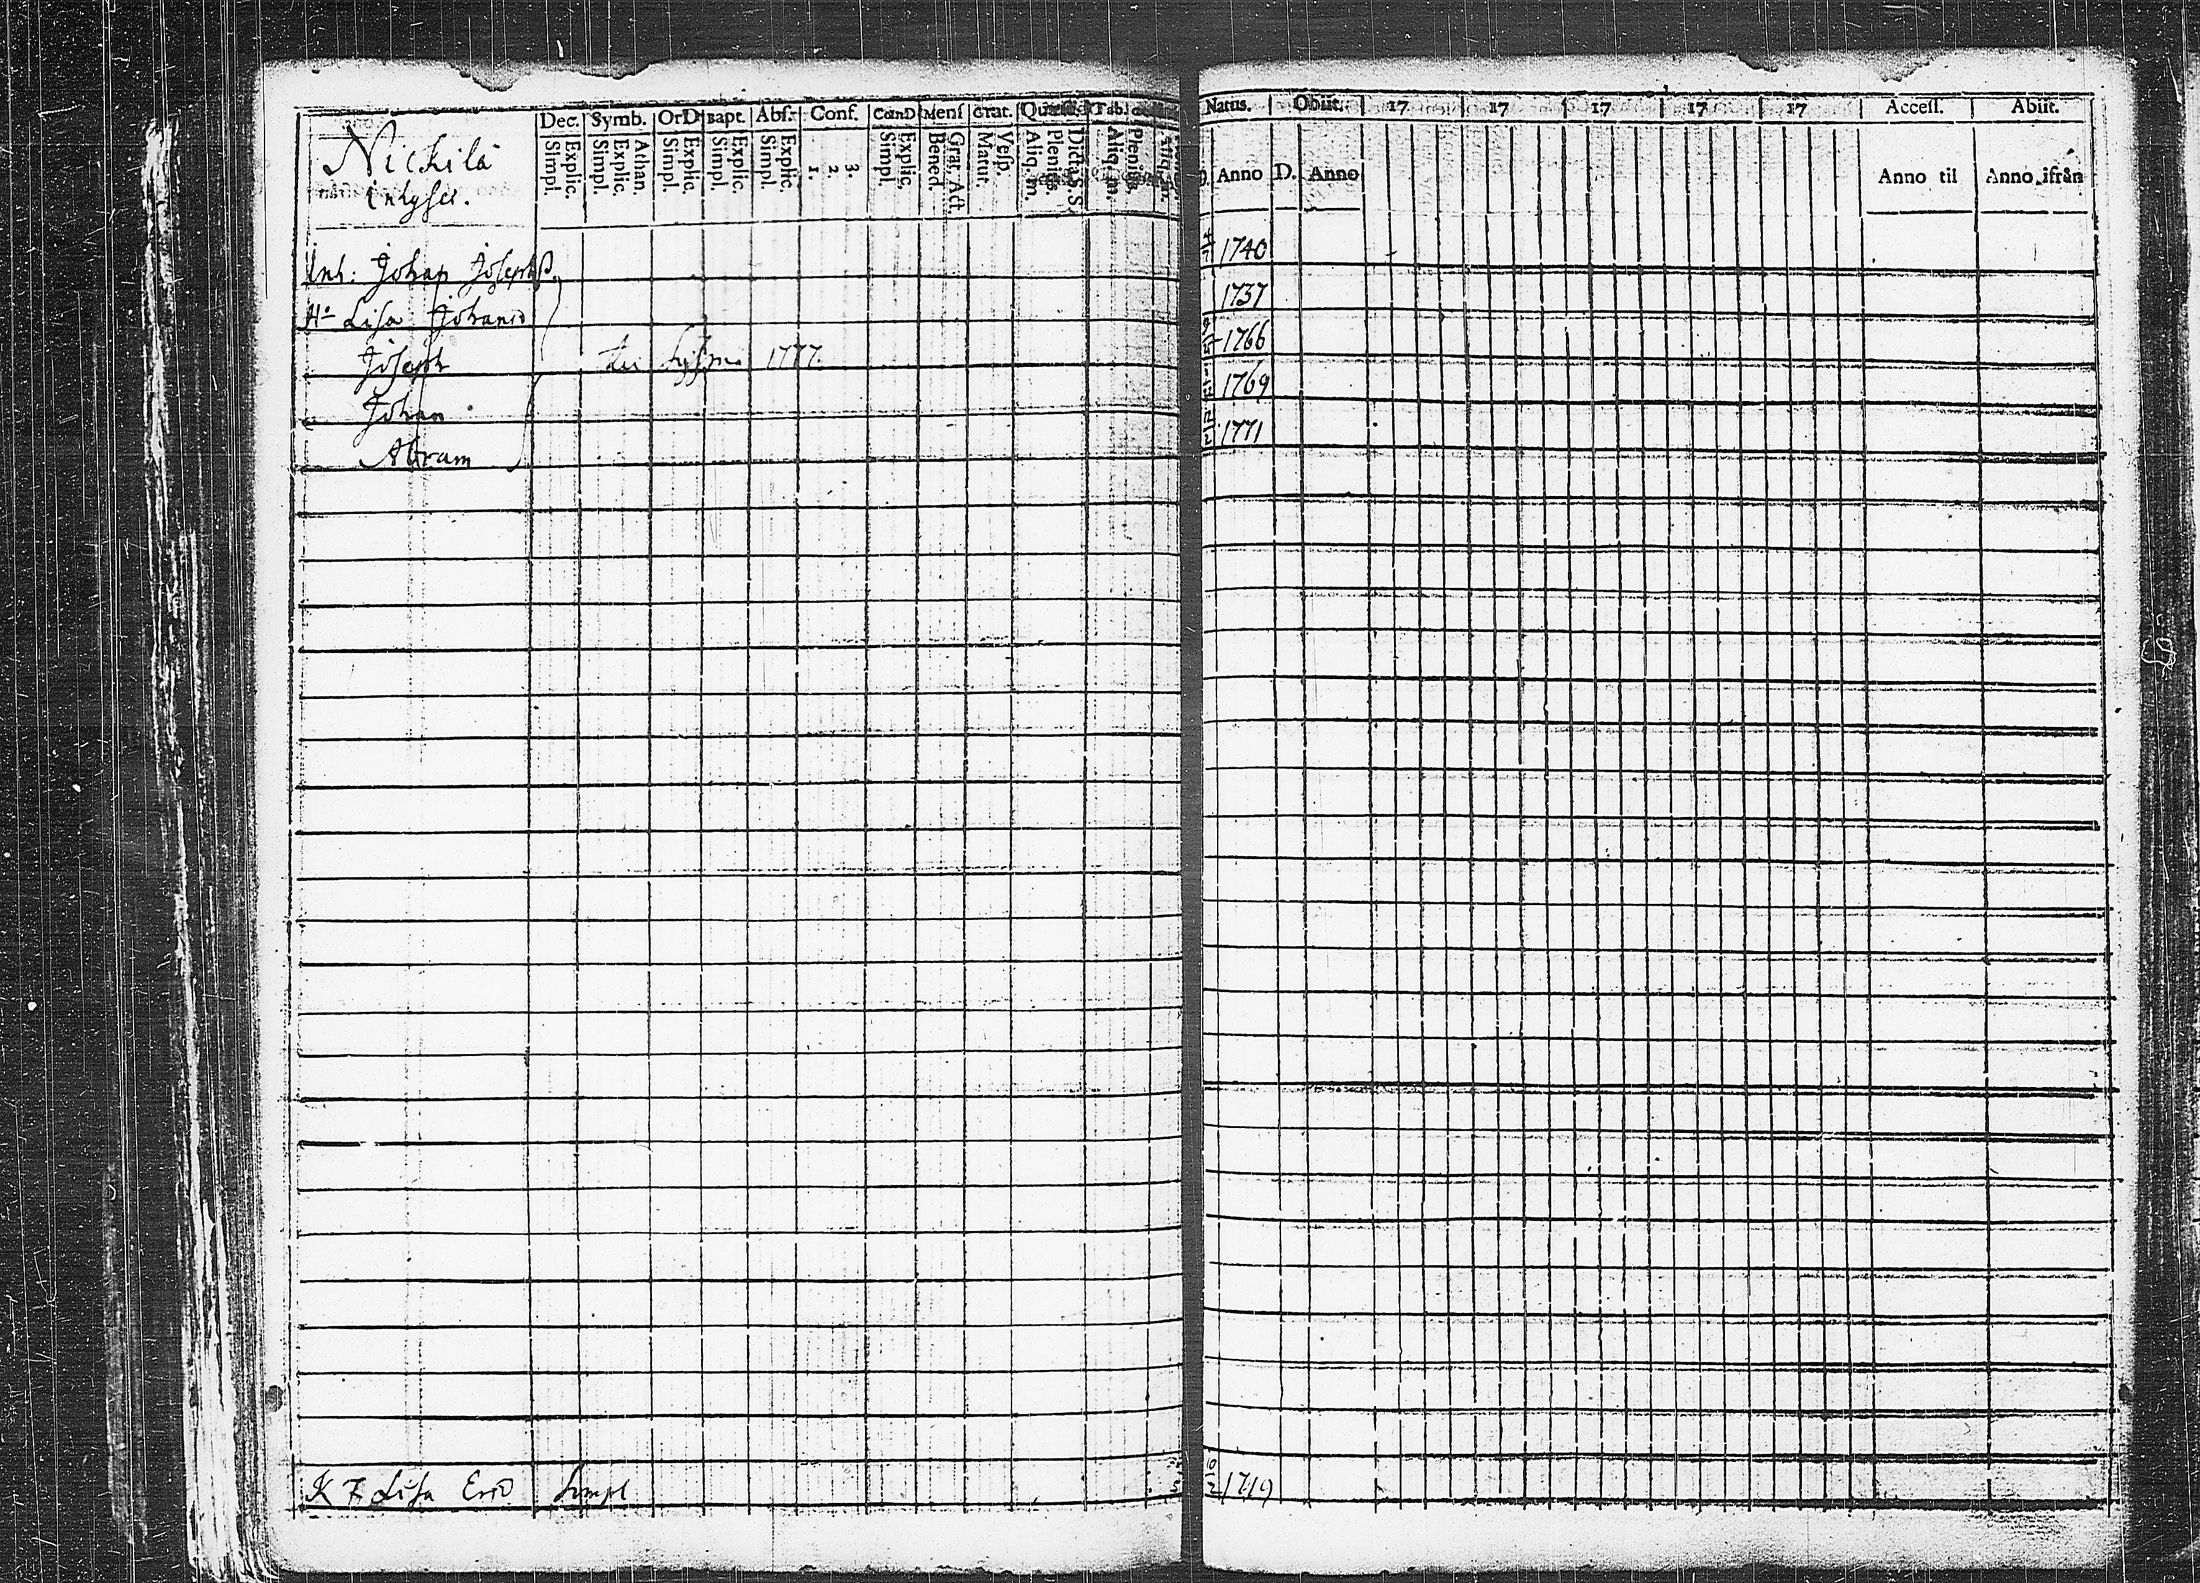 Dec. Symb. OrD Bapt. Abs. Conf. CœnD Mensſ Grat. Quæst. Tab. Natus. Obiit. 17 17 17 17 17 Accesſ. Abiit.
Nichilä
inhyses.
Simpl. Explic. Simpl. Explic. Athan. Simpl. Explic. Simpl. Explic. Simpl. Explic. 1. 2. 3. Simpl. Explic. Bened. Grat. Act. Matut. Veſp. Aliq. m. Plenius. Dicta S. S. Aliq. m. Plenius. Aliq. m. Anno D. Anno Anno til Anno ifrån
Inh: Johan Josephß. 1740
Hᵒ Lisa Johansd 1737
Joseph 1777. 1766
Johan 1769
Abram 1771
K Lisa Ersd Simpl